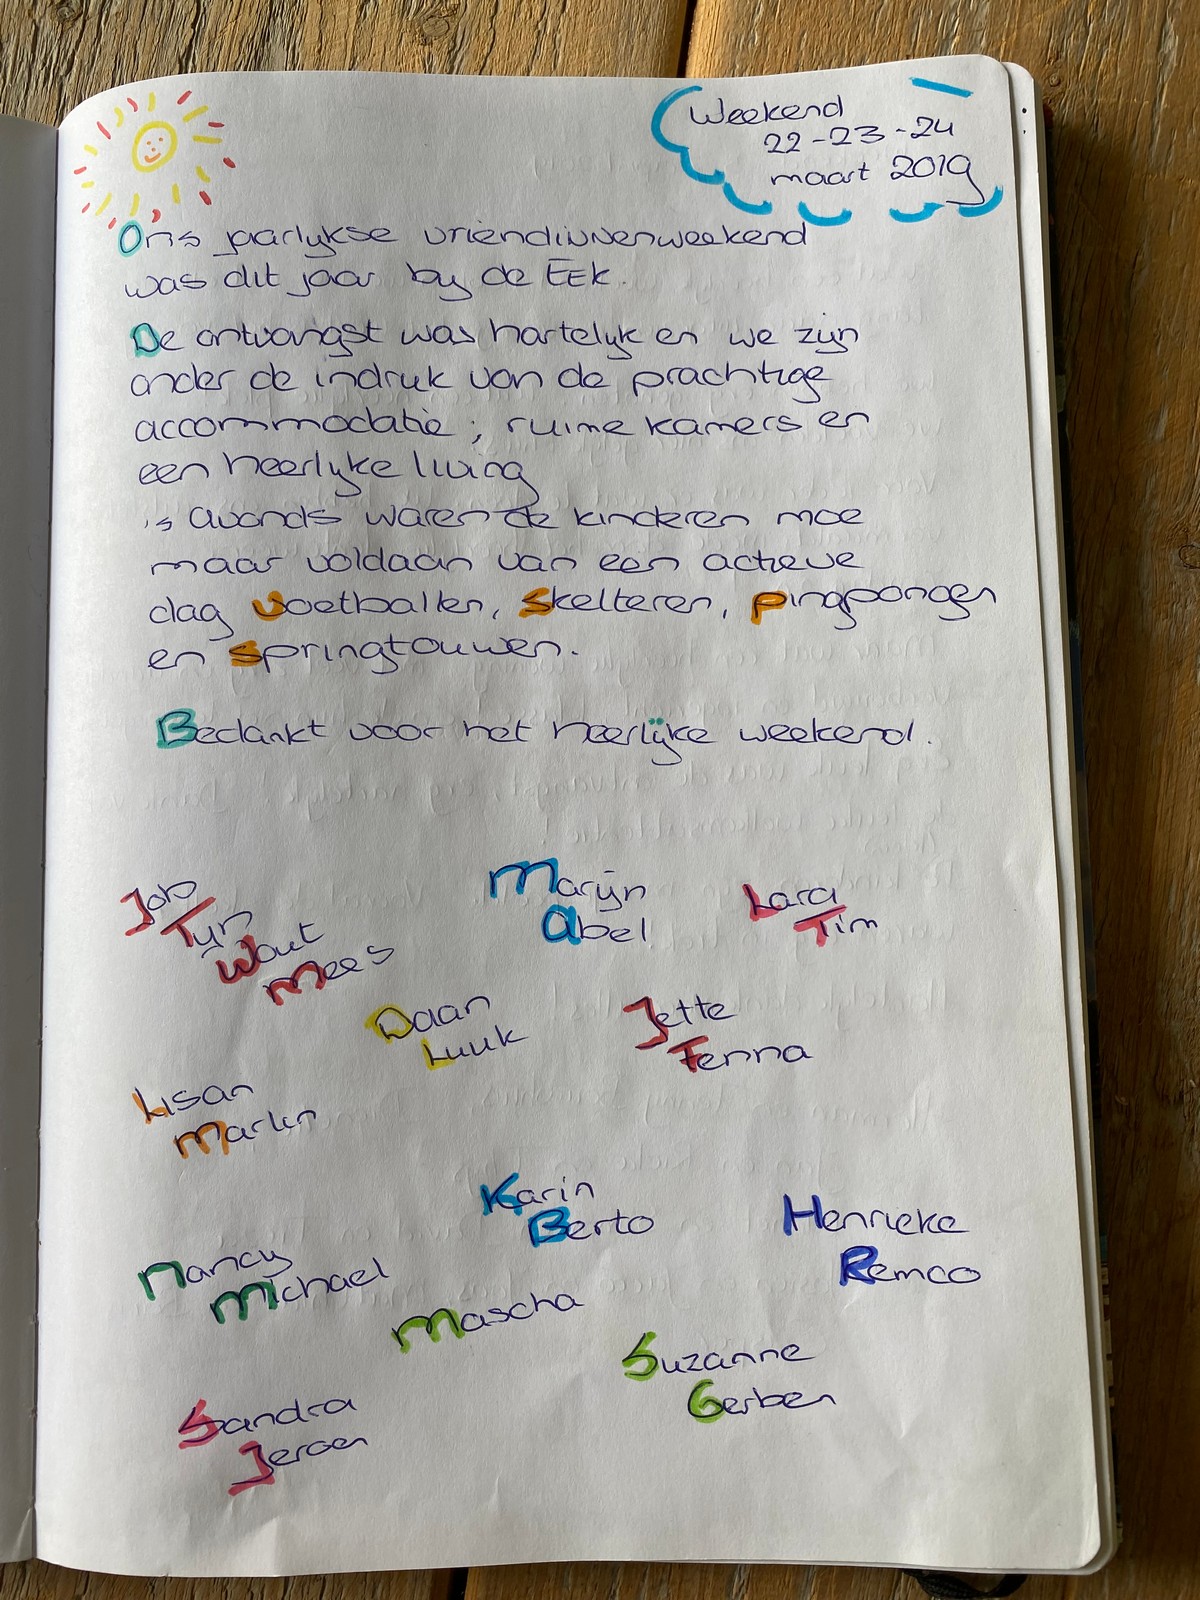 Weekend
22-23-24
maart 2019
Ons jaarlijkse vriendinnenweekend
was dit jaar bij de EEk.
De ontvangst was hartelijk en we zijn
onder de indruk van de prachtige
accommodatie; ruime kamers en
een heerlijke living
's avonds waren de kinderen moe
maar voldaan van een actieve
dag voetballen, skelteren, pingpongen
en springtouwen.
Bedankt voor het heerlijke weekend.
Job
Tijn
Wout
Mees
Marijn
Abel
Lara
Tim
Daan
Luuk
Jette
Fenna
Lisan
Marlin
Karin
Berto
Henrieke
Remco
Nancy
Michael
Mascha
Suzanne
Gerben
Sandra
Jeroen